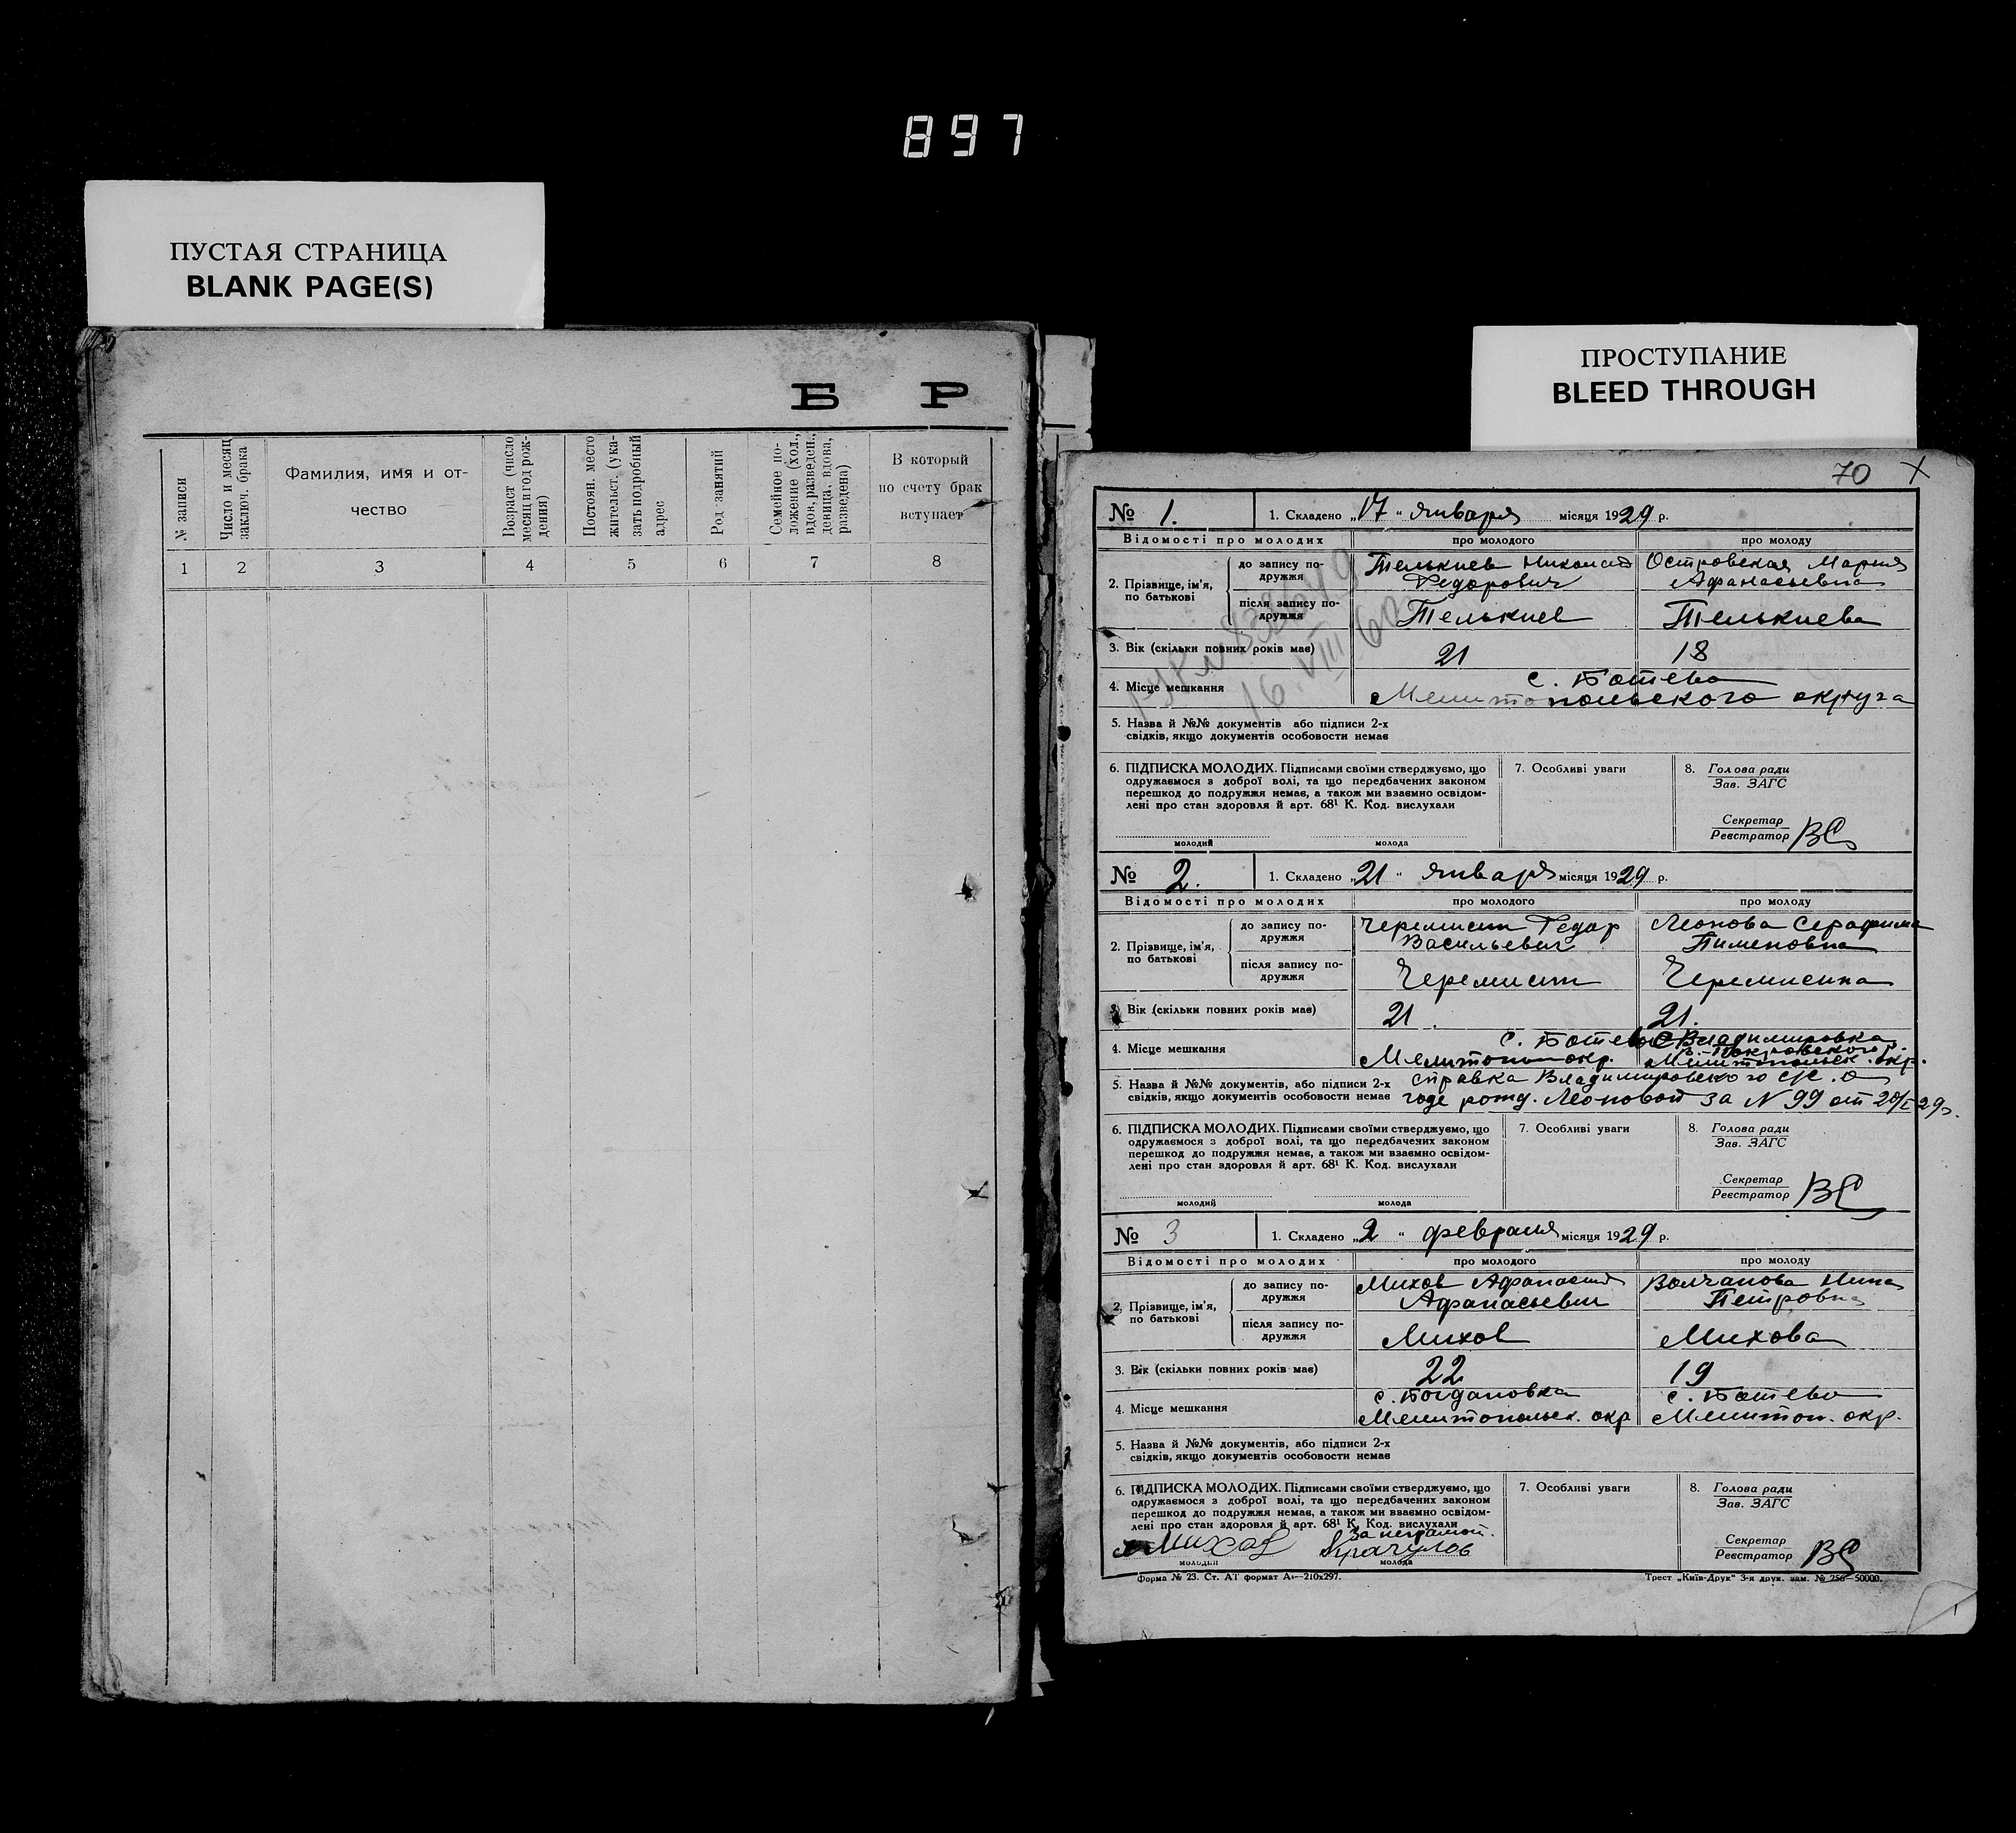 897
ПУСТАЯ СТРАНИЦА
BLANK PAGE(S)
Б Р
№ записи
Число и месяц
заключ. брака
Фамилия, имя и от-
чество
Возраст (число
месяц и год рож-
дения)
Постоян. место
жительст. (ука-
зать подробный
адрес
Род занятий
Семейное по-
ложение (хол.,
вдов, разведен.,
девица, вдова,
разведена)
В который
по счету брак
вступает
1 2 3 4 5 6 7 8
ПРОСТУПАНИЕ
BLEED THROUGH
70 X
№ 1. 1. Складено „17“ января місяця 1929 р.
Відомості про молодих про молодого про молоду
2. Прізвище, ім'я,
по батькові
до запису по-
дружжя
Телькиев Николай
Федорович
Островская Мария
Афанасьевна
після запису по-
дружжя
Телькиев Телькиева
3. Вік (скільки повних років має) 21 18
16 VIII 60
4. Місце мешкання с. Ботево
Мелитопольского округа
5. Назва й №№ документів або підписи 2-х
свідків, якщо документів особовости немає
6. ПІДПИСКА МОЛОДИХ. Підписами своїми стверджуємо, що
одружаємося з доброї волі, та що передбачених законом
перешкод до подружжя немає, а також ми взаємно освідом-
лені про стан здоровля й арт. 68¹ К. Код. вислухали
молодий молода
7. Особливі уваги
8. Голова ради
Зав. ЗАГС
Секретар
Реєстратор
№ 2. 1. Складено „21“ января місяця 1929 р.
Відомості про молодих про молодого про молоду
2. Прізвище, ім'я,
по батькові
до запису по-
дружжя
Черемисин Федор
Васильевич
Леонова Серафима
Пименовна
після запису по-
дружжя
Черемисин Черемисина
3. Вік (скільки повних років має) 21. 21.
4. Місце мешкання с. Ботево
Мелитоп. окр.
с. Владимировка
Покровского р.
Мелитопольск. окр.
5. Назва й №№ документів, або підписи 2-х
свідків, якщо документів особовости немає
справка Владимировского с/с. о
годе рожд. Леоновой за N 99 от 20/I 29г.
6. ПІДПИСКА МОЛОДИХ. Підписами своїми стверджуємо, що
одружаємося з доброї волі, та що передбачених законом
перешкод до подружжя немає, а також ми взаємно освідом-
лені про стан здоровля й арт. 68¹ К. Код. вислухали
молодий молода
7. Особливі уваги
8. Голова ради
Зав. ЗАГС
Секретар
Реєстратор
№ 3 1. Складено „2“ февраля місяця 1929 р.
Відомості про молодих про молодого про молоду
2. Прізвище, ім'я,
по батькові
до запису по-
дружжя
Михов Афанасий
Афанасьевич
Волчанова Нина
Петровна
після запису по-
дружжя
Михов Михова
3. Вік (скільки повних років має) 22 19
4. Місце мешкання
с. Богдановка
Мелитопольск. окр
с. Ботево
Мелитоп. окр.
5. Назва й №№ документів, або підписи 2-х
свідків, якщо документів особовости немає
6. ПІДПИСКА МОЛОДИХ. Підписами своїми стверджуємо, що
одружаємося з доброї волі, та що передбачених законом
перешкод до подружжя немає, а також ми взаємно освідом-
лені про стан здоровля й арт. 68¹ К. Код. вислухали
Михов
за неграмот.
Крачулов
молодий молода
7. Особливі уваги
8. Голова ради
Зав. ЗАГС
Секретар
Реєстратор
Форма № 23. Ст. АТ формат А₄—210х297.
Трест „Київ-Друк“ 3-я друк. зам. № 256—50000.